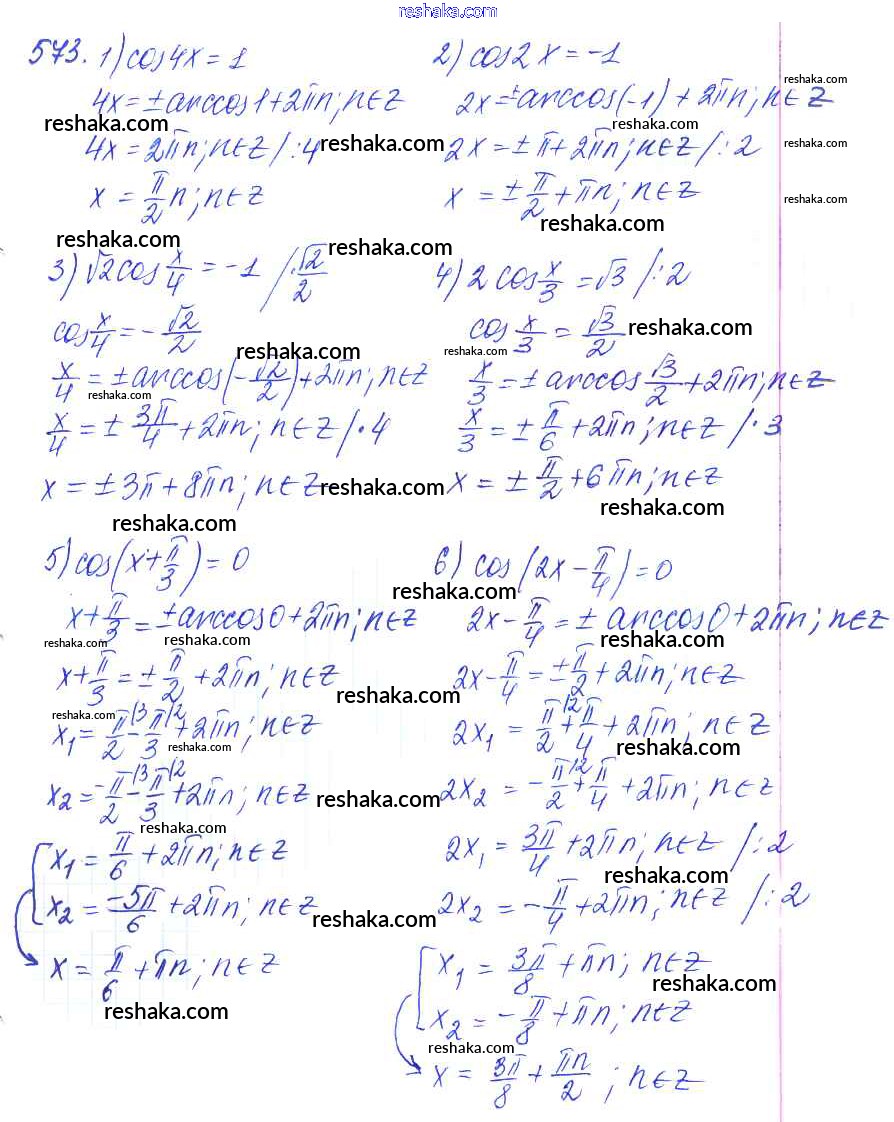 reshaka.com
573. 1) cos4x = 1
4x = ± arccos1 + 2πn; n∈Z
reshaka.com
4x = 2πn; n∈Z /:4
x = π/2 n; n∈Z
reshaka.com
2) cos2x = -1
reshaka.com
2x = ± arccos(-1) + 2πn; n∈Z
reshaka.com
reshaka.com
2x = ± π + 2πn; n∈Z /:2
reshaka.com
x = ± π/2 + πn; n∈Z
reshaka.com
reshaka.com
reshaka.com
3) √2 cos x/4 = -1 /·√2/2
cos x/4 = -√2/2
reshaka.com
x/4 = ± arccos(-√2/2) + 2πn; n∈Z
reshaka.com
x/4 = ± 3π/4 + 2πn; n∈Z /·4
x = ± 3π + 8πn; n∈Z
reshaka.com
reshaka.com
4) 2 cos x/3 = √3 /:2
cos x/3 = √3/2
reshaka.com
reshaka.com
x/3 = ± arccos √3/2 + 2πn; n∈Z
x/3 = ± π/6 + 2πn; n∈Z /·3
x = ± π/2 + 6πn; n∈Z
reshaka.com
5) cos(x + π/3) = 0
reshaka.com
x + π/3 = ± arccos0 + 2πn; n∈Z
reshaka.com
reshaka.com
x + π/3 = ± π/2 + 2πn; n∈Z
reshaka.com
reshaka.com
x₁ = π/2 |3 - π/3 |2 + 2πn; n∈Z
reshaka.com
x₂ = -π/2 |3 - π/3 |2 + 2πn; n∈Z
reshaka.com
reshaka.com
x₁ = π/6 + 2πn; n∈Z
x₂ = -5π/6 + 2πn; n∈Z
reshaka.com
x = π/6 + πn; n∈Z
reshaka.com
6) cos(2x - π/4) = 0
2x - π/4 = ± arccos0 + 2πn; n∈Z
reshaka.com
2x - π/4 = ± π/2 + 2πn; n∈Z
2x₁ = π/2 |2 + π/4 + 2πn; n∈Z
reshaka.com
2x₂ = -π/2 |2 + π/4 + 2πn; n∈Z
2x₁ = 3π/4 + 2πn; n∈Z /:2
reshaka.com
2x₂ = -π/4 + 2πn; n∈Z /:2
x₁ = 3π/8 + πn; n∈Z
reshaka.com
x₂ = -π/8 + πn; n∈Z
reshaka.com
x = 3π/8 + πn/2; n∈Z